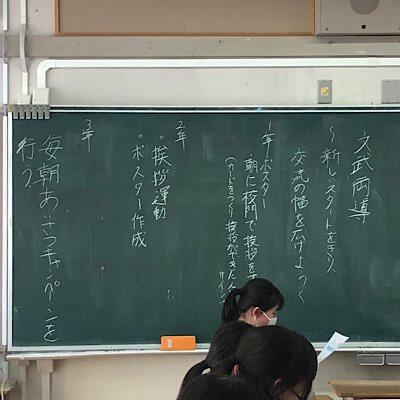 文武両導
～新しいスタートをきり
交流の幅を広げよう～
1年 ポスター
朝に校門で挨拶を
(カードをつくり挨拶ができた人へ
サイン
2年
"挨拶運動
"ポスター作成
3年
毎朝あいさつキャンペーンを
行う。